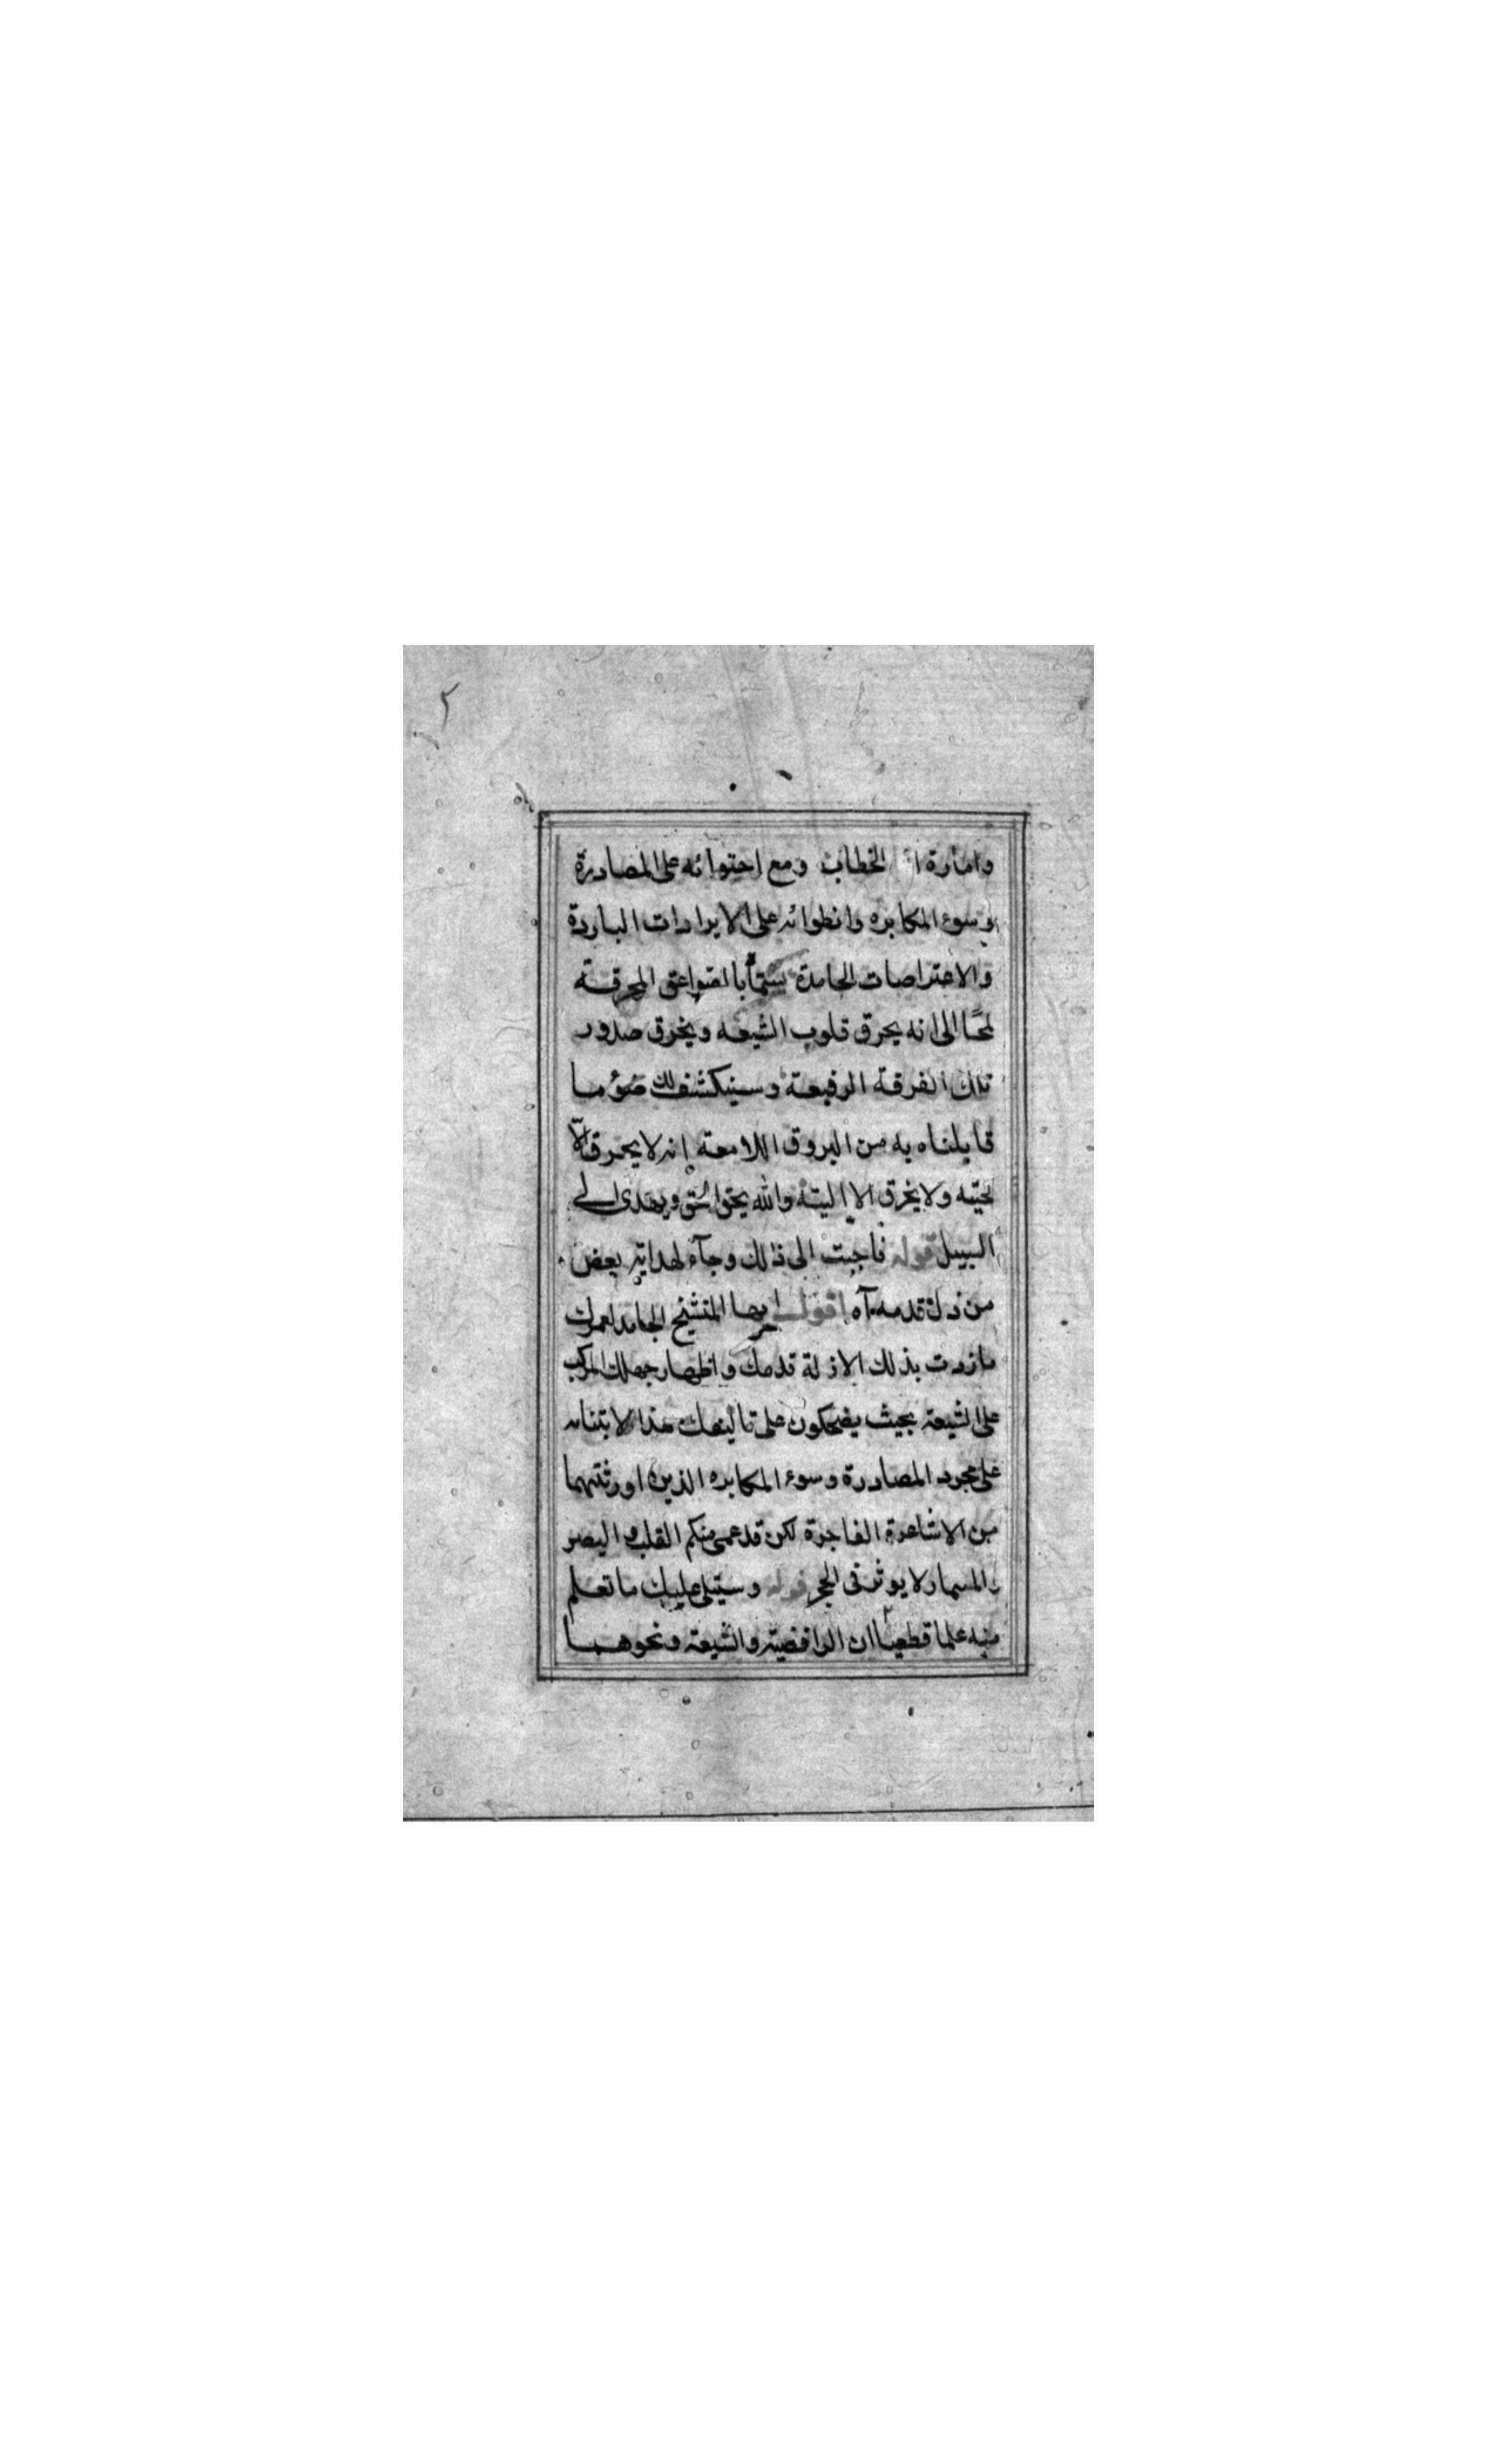 ٢
وامارة الخطاب ومع احتوائه على المصادرة
وسوء المكابره وانطوائه على الايرادات الباردة
والاعتراضات الجامدة بالصواعق المحرقة
لمحًا الى انه يحرق قلوب الشيعه ويخرق صدور
تلك الفرقة الرفيعة وسينكشف لك ضوء ما
قابلناه به من البروق اللامعة انه لا يحرق الّا
لحيته ولا يخرق الا اليته والله يحق الحق ويهدى الى
السبيل قوله فاجبت الى ذلك وجآء لهداية بعض
من زل قدمه آه اقول ايها المتشيخ الجامد لعمرك
ما زدت بذلك الا زلة قدمك واظهار جهلك المركب
على الشيعه بحيث يضحكون على تاليفك هذا لابتنائه
على مجرد المصادرة وسوء المكابره الذين اورثتهما
من الاشاعرة الفاجرة لكن قد عمى منكم القلب والبصر
والمسمار لا يوثر فى الحجر قوله وسيتلى عليك ما تعلم
منه علما قطعيا ان الرافضية والشيعة ونحوهما